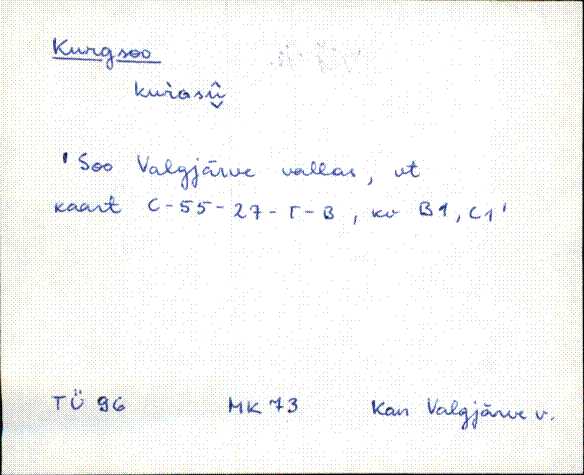 Kurgsoo
' Soo Valgjärve vallas, vt
kaart C-55-27-Г-В, kv B1, C1'
TÜ 96 MK 73 Kan Valgjärve v.